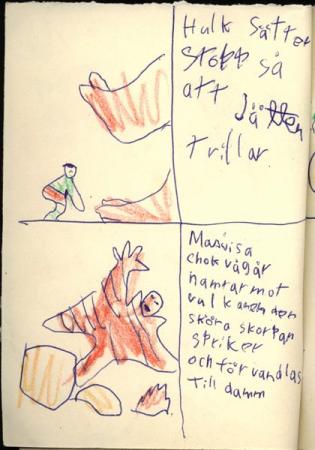 Hulk sätter
stopp så
att
jätten
trillar.
Massvisa
chokvågår
hamrar mot
vulkanen den
sköra skorpan
spriker
och för vandlas
till damm